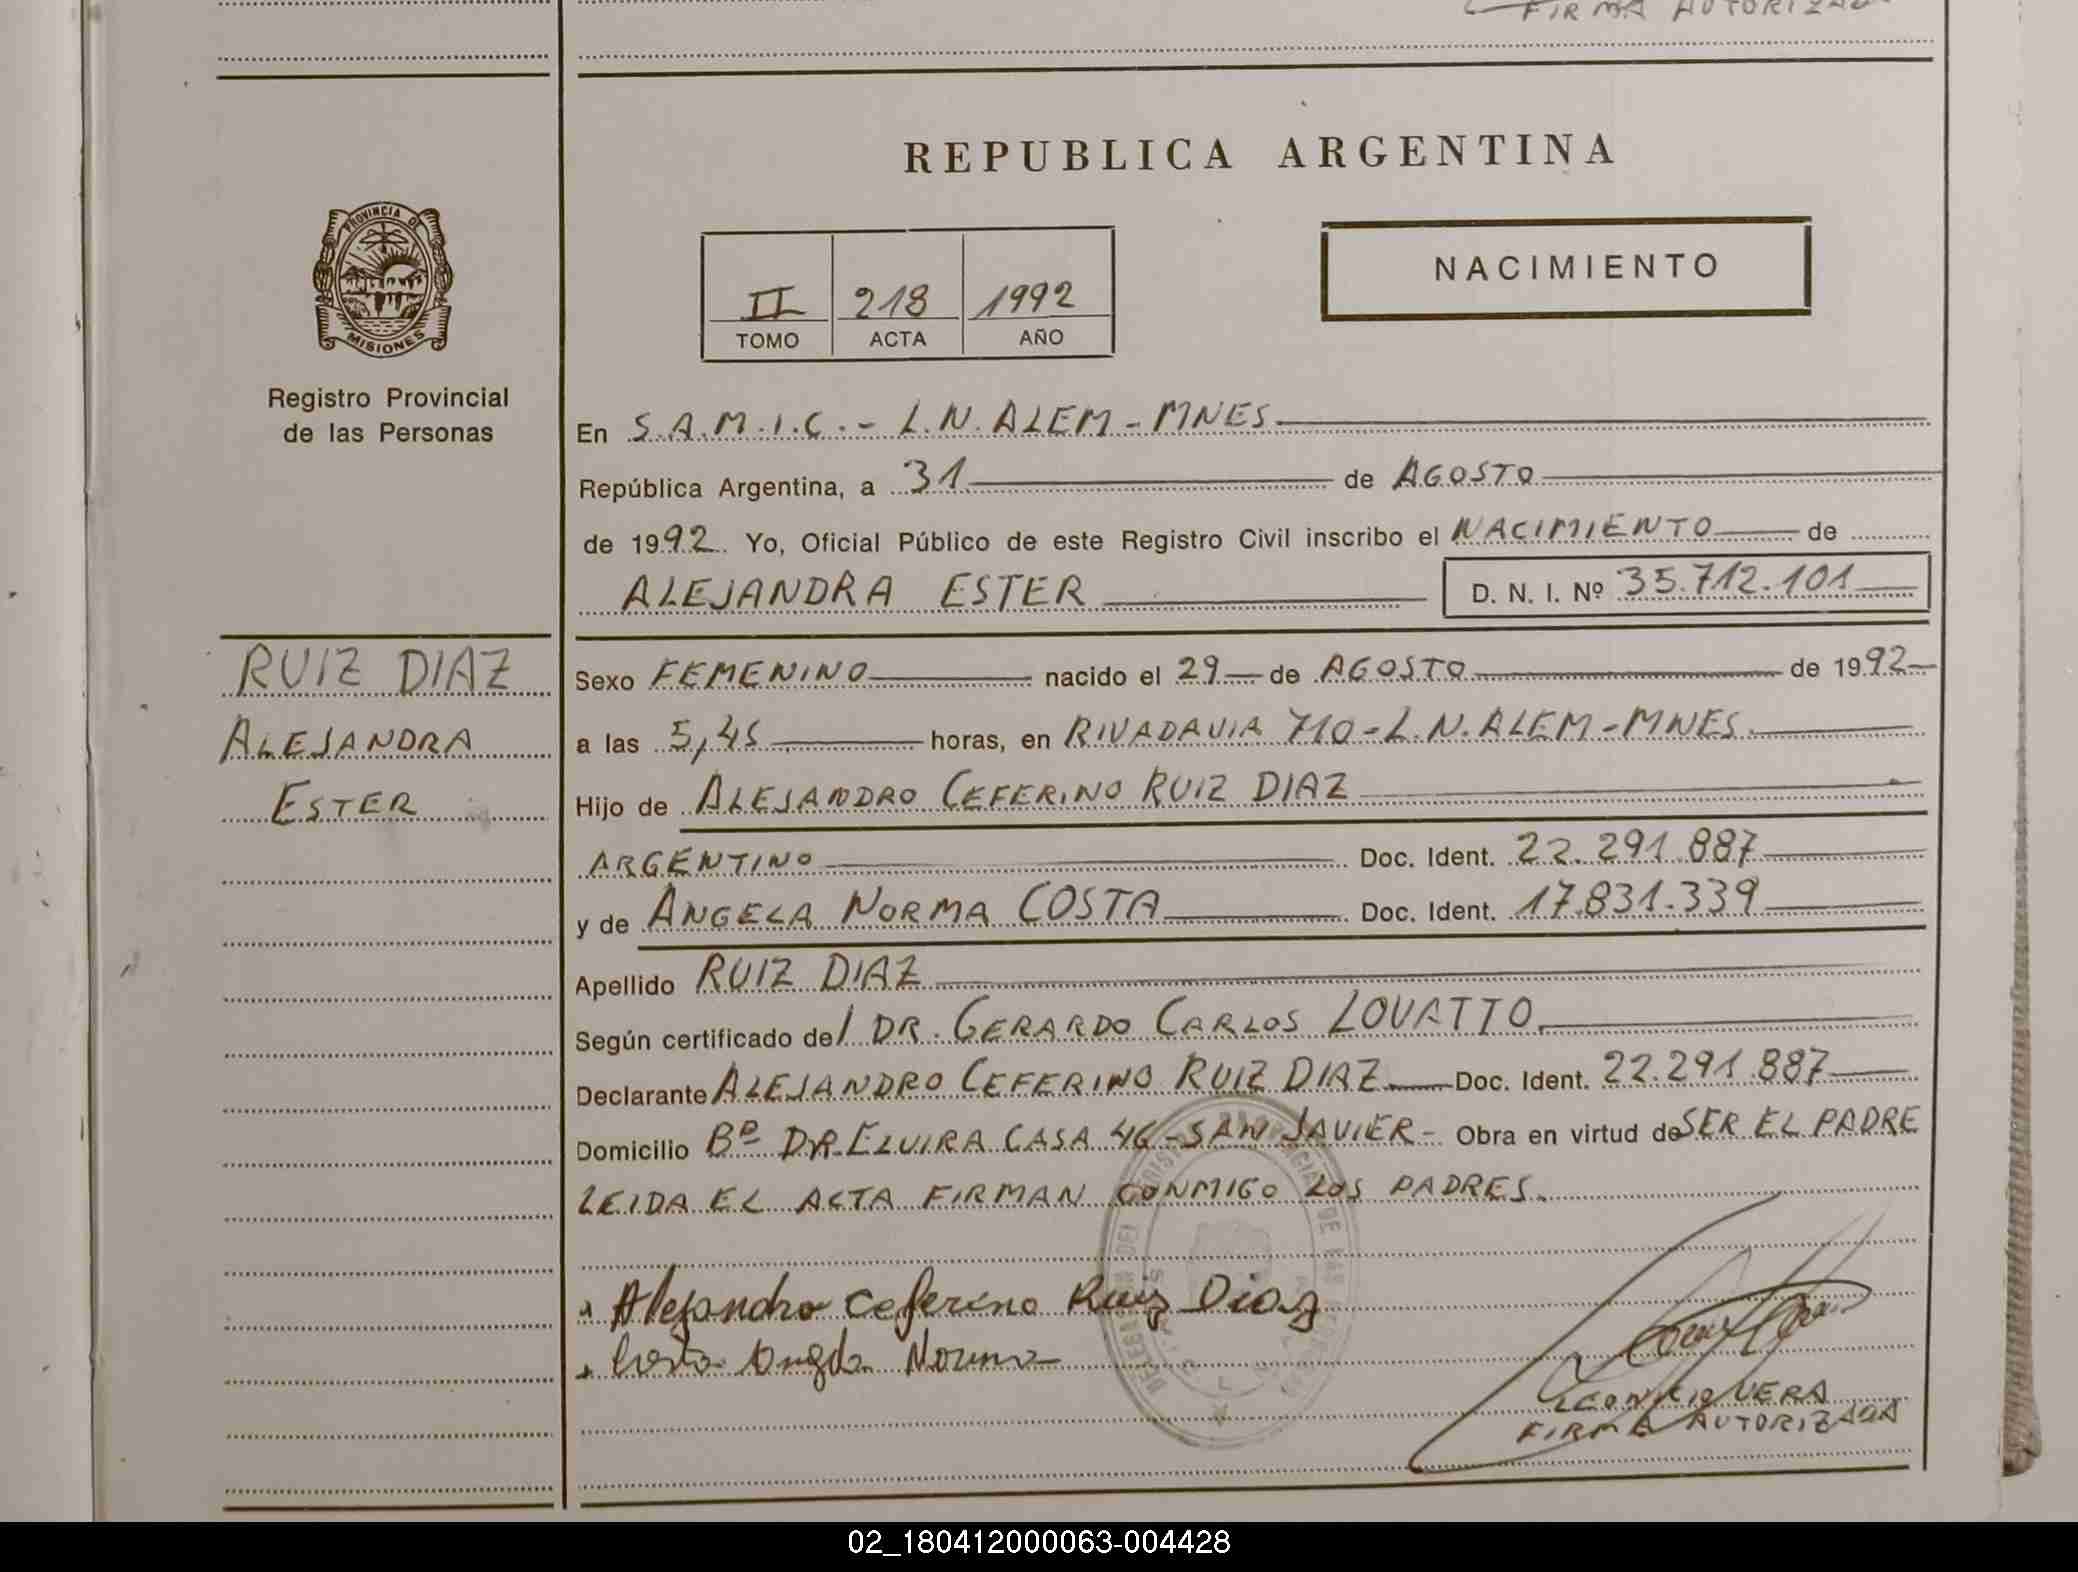 FIRMA AUTORIZADA
REPUBLICA ARGENTINA
PROVINCIA DE
MISIONES
Registro Provincial
de las Personas
II 218 1992
TOMO ACTA AÑO
NACIMIENTO
En S.A.M.I.C.- L.N. ALEM - MNES
República Argentina, a 31 de AGOSTO
de 1992. Yo, Oficial Público de este Registro Civil inscribo el NACIMIENTO de
ALEJANDRA ESTER D. N. I. Nº 35.712.101
RUIZ DIAZ
ALEJANDRA
ESTER
Sexo FEMENINO nacido el 29 de AGOSTO de 1992
a las 5,45 horas, en RIVADAVIA 710 - L.N. ALEM - MNES.
Hijo de ALEJANDRO CEFERINO RUIZ DIAZ
ARGENTINO Doc. Ident. 22.291.887
y de ANGELA NORMA COSTA Doc. Ident. 17.831.339
Apellido RUIZ DIAZ
Según certificado de/ DR. GERARDO CARLOS LOVATTO
Declarante ALEJANDRO CEFERINO RUIZ DIAZ Doc. Ident. 22.291.887
Domicilio Bº DR. ELVIRA CASA 46 - SAN JAVIER - Obra en virtud de SER EL PADRE
LEIDA EL ACTA FIRMAN CONMIGO LOS PADRES.
Alejandro Ceferino Ruiz Diaz
Costa Angela Norma
LEONICIO VERA
FIRMA AUTORIZADA
02_180412000063-004428